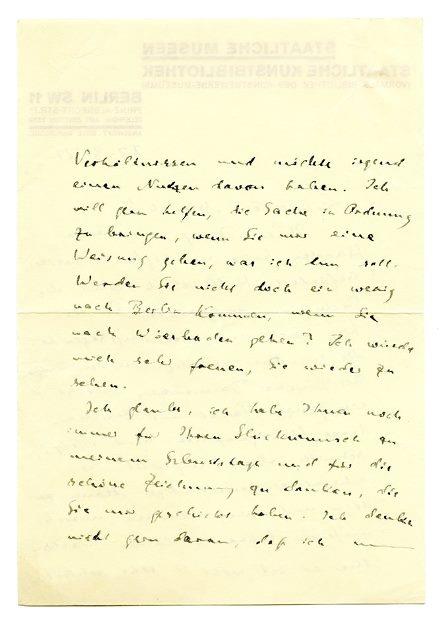 STAATLICHE MUSEEN
STAATLICHE KUNSTBIBLIOTHEK
BERLIN SW 11
Verhältnissen und möchte irgend
einen Nutzen davon haben. Ich
will gern helfen, die Sache in Ordnung
zu bringen, wenn Sie mir eine
Weisung geben, was ich tun soll.
Werden Sie nicht doch ein wenig
nach Berlin kommen, wenn Sie
nach Wiesbaden gehen? Ich würde
mich sehr freuen, Sie wieder zu
sehen.
Ich glaube, ich habe Ihnen noch
immer für Ihren Glückwunsch zu
meinem Geburtstage und für die
schöne Zeichnung zu danken, die
Sie mir geschickt haben. Ich denke
nicht gern daran, daß ich